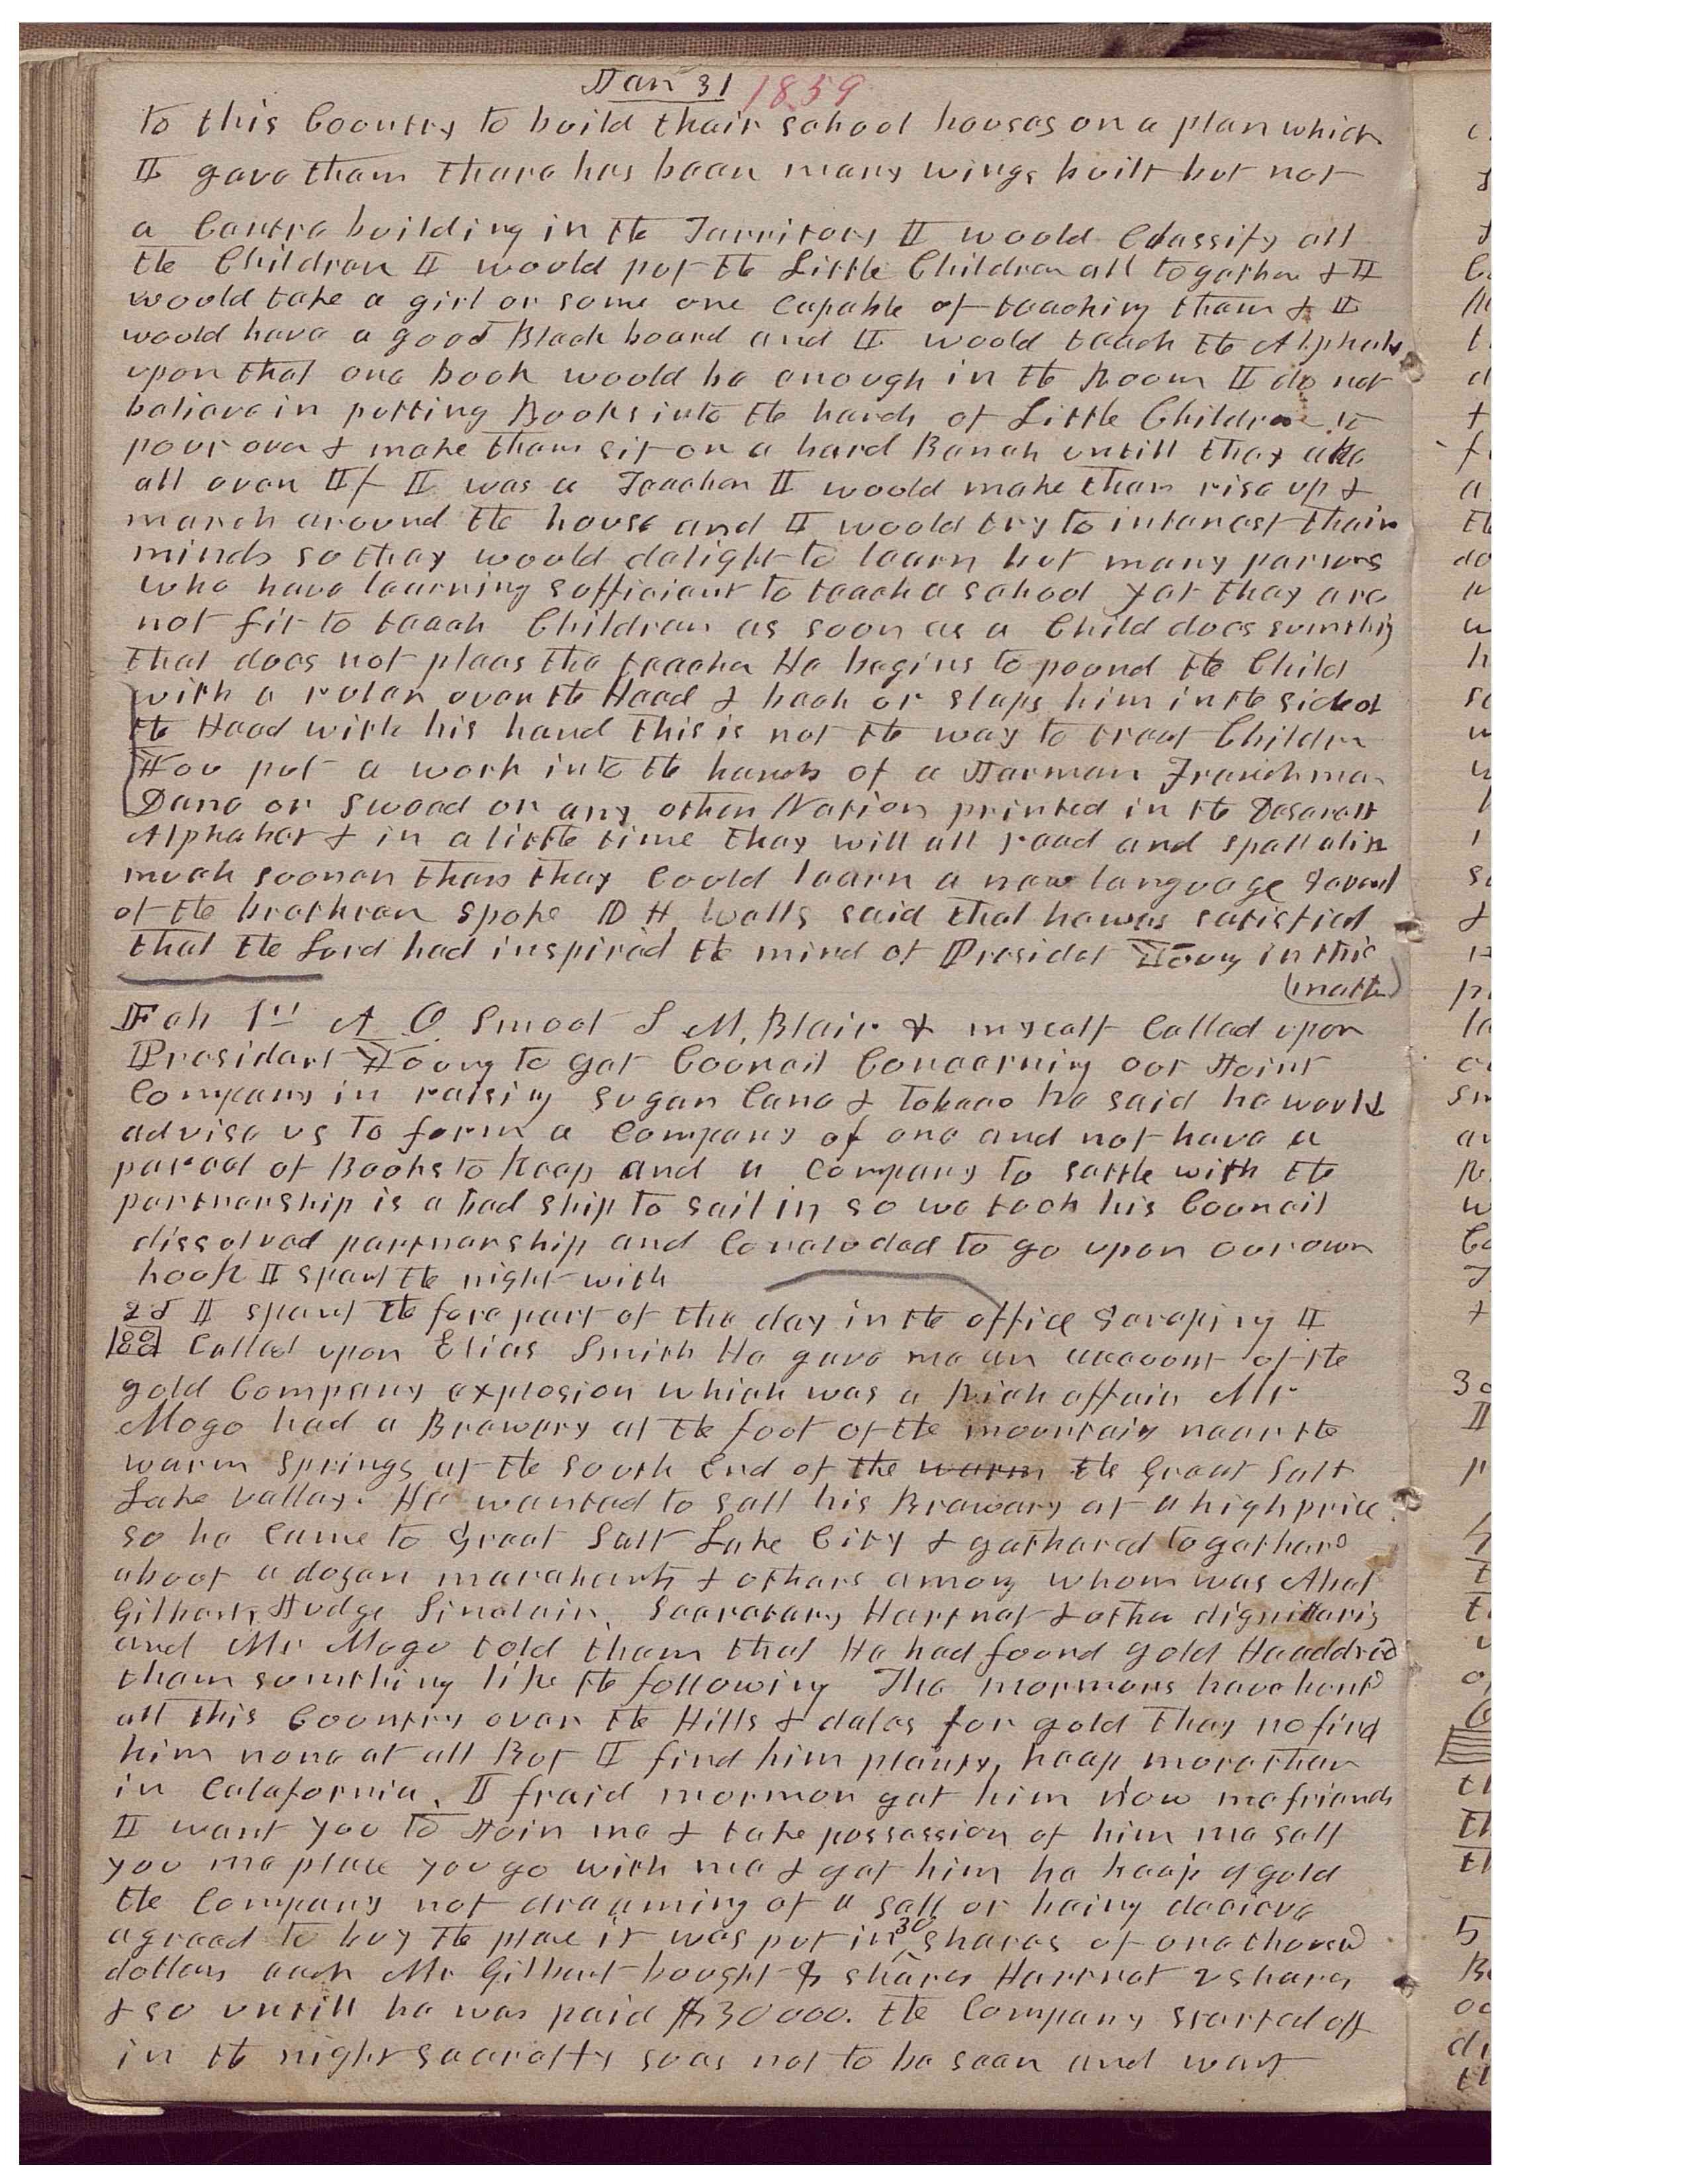 Jan 31 1859
to this Country to build their school houses on a plan which
I gave them there has been many wings built but not
a Centre building in the Territory I would Classify all
the Children I would put the Little Children all together & I
would take a girl or some one Capable of teaching them & I
would have a good Black board and I would teach the Alphabet
upon that one book would be enough in the Room I do not
believe in putting Books into the hands of Little Children to
pour over & make them sit on a hard Bench untill they ake
all over If I was a Teacher I would make them rise up &
march around the house and I would try to interest their
minds so they would delight to learn but many persons
who have learning sufficient to teach a school yet they are
not fit to teach Children as soon as a Child does sumthig
that does not pleas the teacher He begins to pound the Child
with a ruler over the Head & back or slaps him in the side of
the Head with his hand this is not the way to treat Childrn
You put a work into the hands of a Jerman Frenchman
Dane or Sweed or any other Nation printed in the Deserett
Alphabet & in a little time they will all read and spell alike
much sooner than they Could learn a new language several
of the brethren spoke D H Wells said that he was satisfied
that the Lord had inspired the mind of Presidet Young in this
matter
Feb 1st A O Smoot S M. Blair & myself Called upon
President Young to get Council Concerning our Joint
Company in raising Sugar Cane & Tobacco he said he would
advise us to form a Company of one and not have a
parcel of Books to Keep and a Company to settle with the
partnership is a bad ship to sail in so we took his Council
dissolved partnership and Concluded to go upon our own
hook I spent the night with
2d I spent the fore part of the day in the office Scraping I
Called upon Elias Smith He gave me an account of the
gold Company explosion which was a Rich affair Mr
Mogo had a Brewery at the foot of the mountain near the
warm springs at the South End of the warm the Great Salt
Lake valley. He wanted to sell his Brewery at a high price
so he Came to Great Salt Lake City & gathered together
about a dozen merchants & others among whom was Abel
Gilbert, Judge Sinclair, Secretary Hartnet & other dignittaris
and Mr Mogo told them that He had found gold He addrsd
them sumthing like the following The mormons have hunt
all this Country over the Hills & dales for gold they no find
him none at all But I find him plenty, heap more than
in Calafornia, I fraid mormon get him Now me friends
I want you to Join me & take possession of him me sell
you me place you go with me & get him he heap of gold
the Company not dreaming of a sell or being deceive
agreed to buy the place it was put in 30 shares of one thousand
dollars each Mr Gilbert bought 5 shares Hartnet 2 shares
& so untill he was paid $30000. the Company started off
in the night secretly so as not to be seen and went